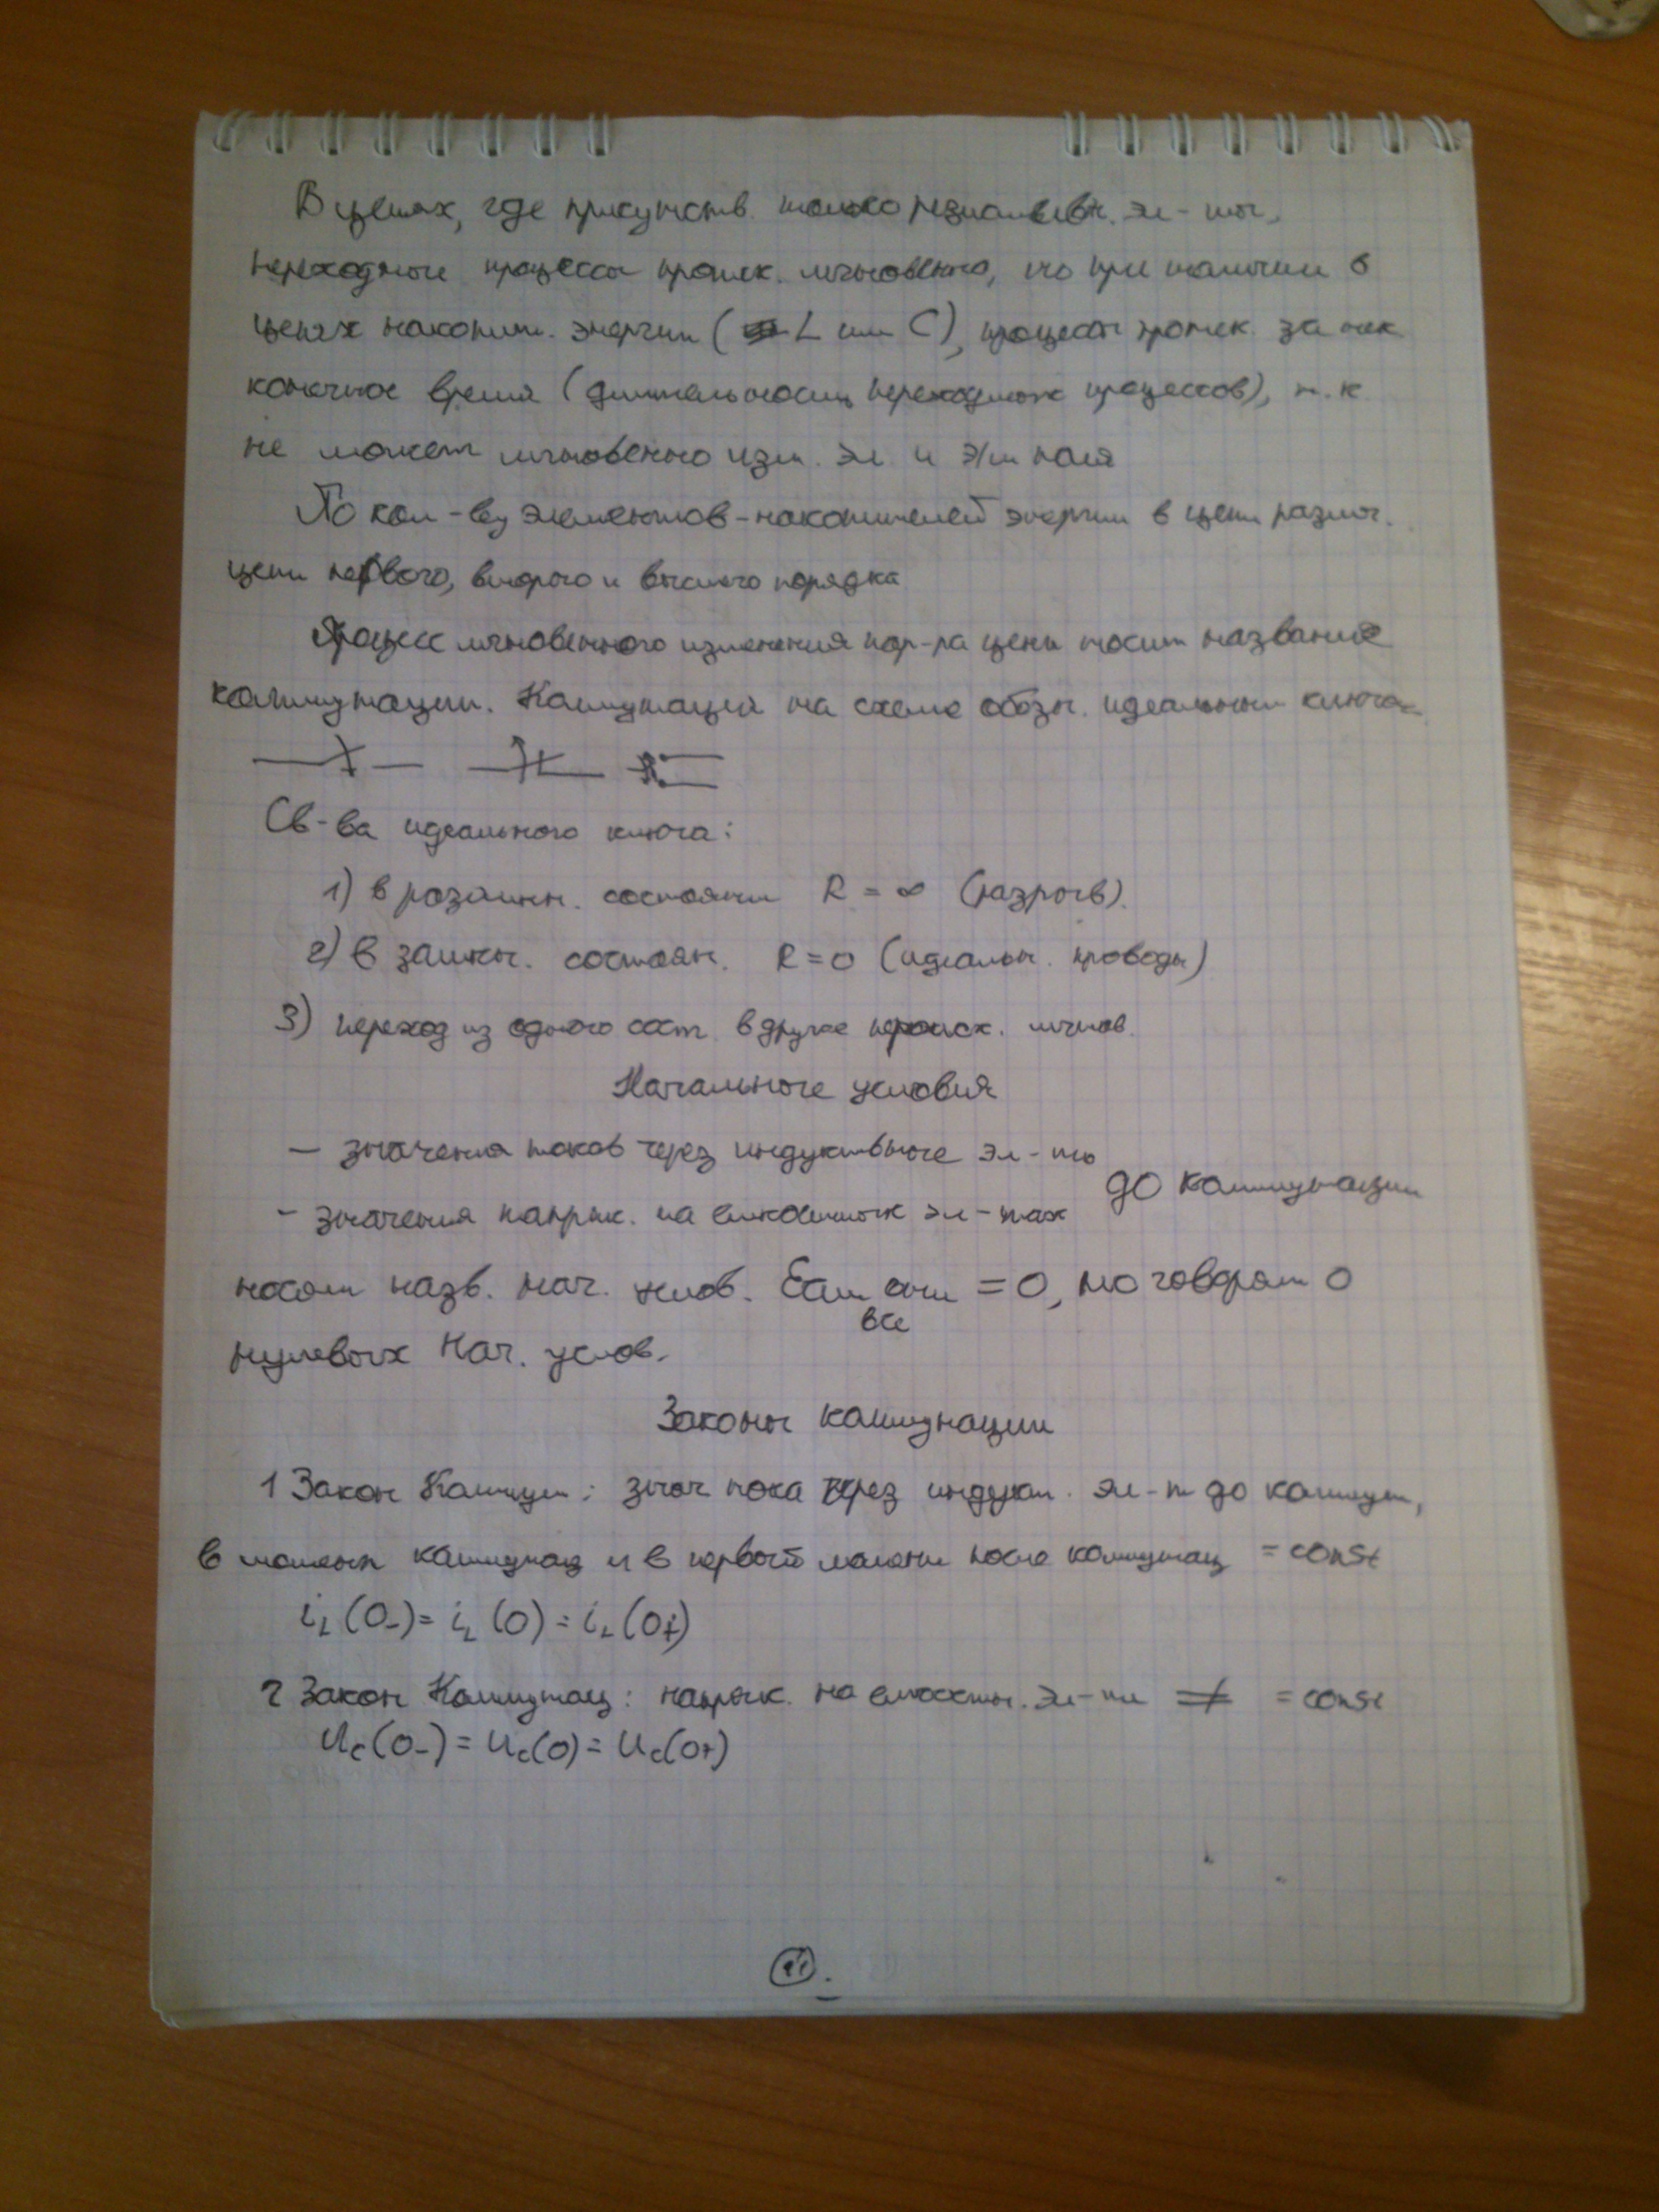 В цепях, где присутств. только резистивн. эл-ты,
переходные процессы протек. мгновенно, но при наличии в
цепях накопит. энергии (L или C), процессы протек. за нек
конечное время (длительность переходных процессов), т.к
не может мгновенно изм. эл. и э/м поля
По кол-ву элементов-накопителей энергии в цепи различ.
цепи первого, второго и высшего порядка
Процесс мгновенного изменения пар-ра цепи носит название
коммутации. Коммутация на схеме обозн. идеальным ключом
Св-ва идеального ключа:
1) в разомкн. состоянии R = ∞ (разрыв).
2) в замкн. состоян. R=0 (идеальн. проводн)
3) переход из одного сост. в другое происх. мгнов.
Начальные условия
– значения токов через индуктивные эл-ты
– значения напряж. на емкостных эл-тах
до коммутации
носят назв. нач. услов. Если они = 0, то говорят о
все
нулевых нач. услов.
Законы коммутации
1 Закон Коммут: знач тока через индукт. эл-т до коммут,
в момент коммутац и в первый момент после коммутац = const
i_L(0-)= i_L(0)= i_L(0+)
2 Закон Коммутац: напряж. на емкостн. эл-те = const
u_c(0-) = u_c(0) = u_c(0+)